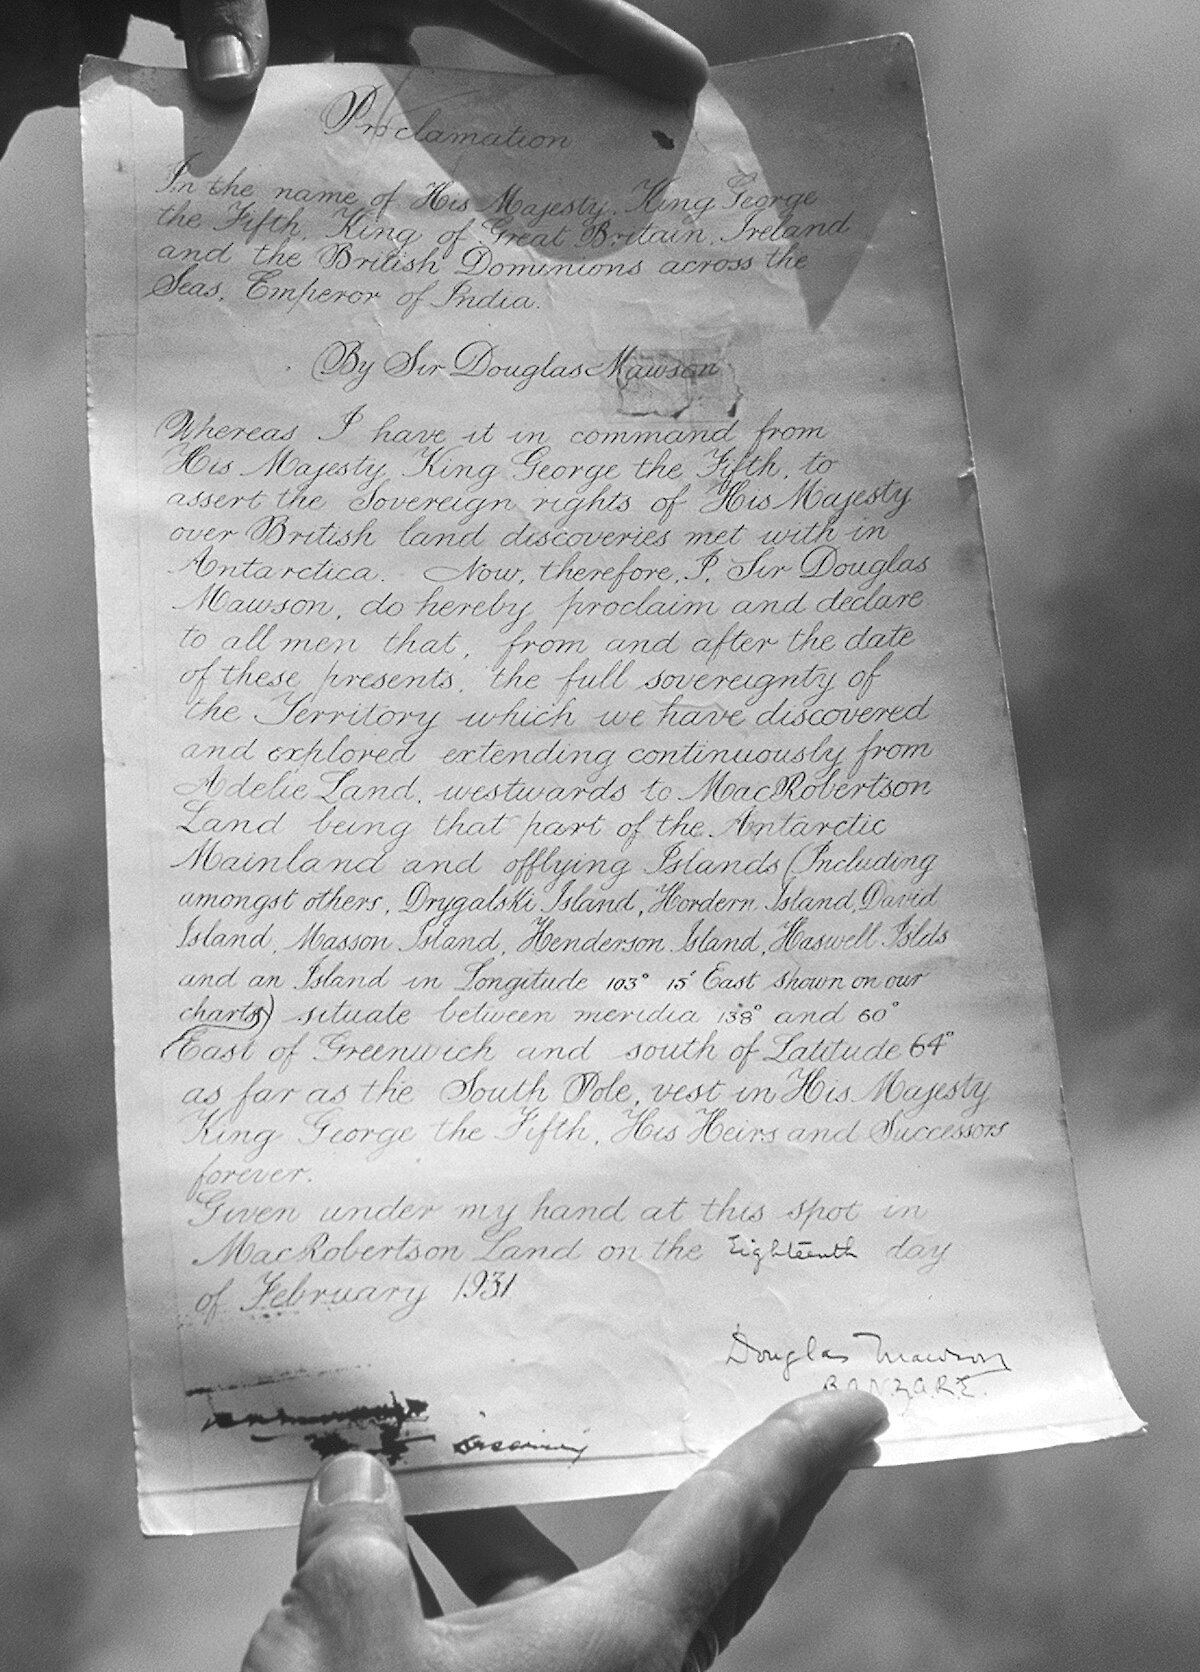 Proclamation
In the name of His Majesty, King George
the Fifth, King of Great Britain, Ireland
and the British Dominions across the
Seas, Emperor of India.
By Sir Douglas Mawson
Whereas I have it in command from
His Majesty, King George the Fifth, to
assert the Sovereign rights of His Majesty
over British land discoveries met with in
Antarctica. Now, therefore, I, Sir Douglas
Mawson, do hereby proclaim and declare
to all men that, from and after the date
of these presents, the full sovereignty of
the Territory which we have discovered
and explored extending continuously from
Adelie Land, westwards to MacRobertson
Land being that part of the Antarctic
Mainland and offlying Islands (Including
amongst others, Drygalski Island, Hordern Island, David
Island, Masson Island, Henderson Island, Haswell Islds
and an Island in Longitude 103° 15' East shown on our
charts) situate between meridia 138° and 60°
East of Greenwich and south of Latitude 64°
as far as the South Pole, vest in His Majesty
King George the Fifth, His Heirs and Successors
forever.
Given under my hand at this spot in
MacRobertson Land on the Eighteenth day
of February 1931
Douglas Mawson
B.A.N.Z.A.R.E.